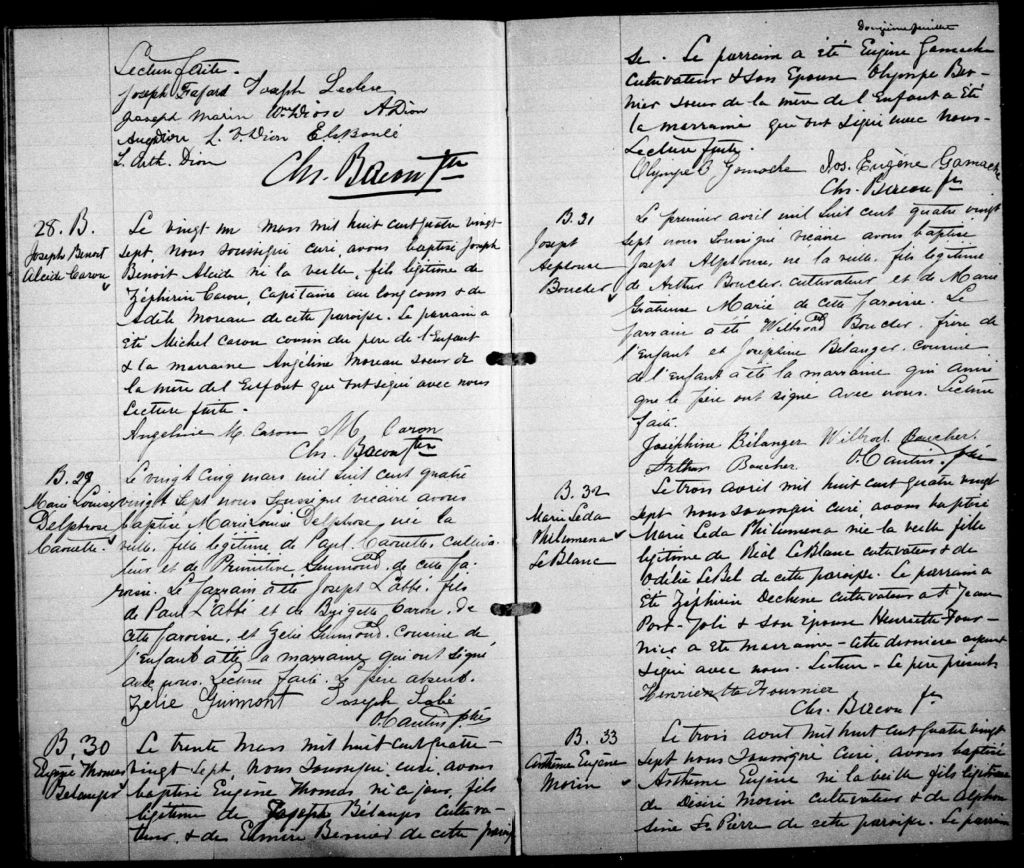 Lecture faite.
Joseph Fafard Joseph Leclerc
Joseph Marin Wm Dion A Dion
L. V. Dion
J. Arth. Dion
Chs. Bacon Ptre
28. B.
Joseph Benoit
Alcide Caron
Le vingt un Mars mil huit cent quatre vingt-
sept, nous soussigné curé, avons baptisé Joseph
Benoit Alcide né la veille, fils légitime de
Zéphirin Caron, Capitaine au long cours & de
Adèle Moreau de cette paroisse. Le parrain a
été Michel Caron cousin du père de l'Enfant
& la marraine Angéline Moreau soeur de
la mère de l'Enfant qui ont signé avec nous
Lecture faite.
Angeline M. Caron M. Caron
Chs. Bacon Ptre
B. 29
Marie Louise
Delphrose
Caouette.
Le vingt cinq mars mil huit cent quatre
vingt sept nous soussigné vicaire avons
baptisé Marie Louise Delphose, née la
veille, fille légitime de Paul Caouette, cultiva-
teur et de Primitive Guimond de cette pa-
roisse. Le parrain a été Joseph L'abbé, fils
de Paul L'abbé et de Brigette Caron, de
cette paroisse, et Zélie Guimond, cousine de
l'Enfant a été la marraine, qui ont signé
avec nous. Lecture faite. Le père absent.
Zélie Guimont Joseph Labé
B. 30
Eugène Thomas
Bélanger
Le trente Mars mil huit cent quatre-
vingt sept, nous soussigné, curé, avons
baptisé Eugène Thomas né ce jour, fils
légitime de Joseph Bélanger cultiva-
teur, & de Elmire Bernier de cette parois
Douzième feuillet
se. Le parrain a été Eugène Gamache
cultivateur & son Epouse Olympe Ber-
nier soeur de la mère de l'Enfant a été
la marraine qui ont signé avec nous-
Lecture faite.
Olympe B Gamache Jos. Eugène Gamache
Chs. Bacon Ptre
B. 31
Joseph
Alphonse
Boucher
Le premier avril mil huit cent quatre vingt
sept nous soussigné vicaire avons baptisé
Joseph Alphonse, né la veille, fils légitime
de Arthur Boucher cultivateur et de Marie
Gratienne Marié de cette paroisse. Le
parrain a été Wilbrod Boucher, frère de
l'Enfant et Josephine Bélanger, cousine
de l'Enfant a été la marraine qui ainsi
que le père ont signé avec nous. Lecture
faite.
Joséphine Bélanger Wilbrod Boucher.
Arthur Boucher.
B. 32
Marie Leda
Philumena
LeBlanc
Le trois avril mil huit cent quatre vingt
sept nous soussigné curé, avons baptisé
Marie Leda Philumena née la veille fille
légitime de Réal LeBlanc cultivateur & de
Odélie LeBel de cette paroisse. Le parrain a
été Zéphirin Dechene cultivateur à St Jean
Port-Joli & son Epouse Henriette Four-
nier a été marraine - cette dernière ayant
signé avec nous. Lecture - Le père présent
Henriette Fournier
Chs. Bacon Ptre
B. 33
Anthime Eugène
Morin
Le trois avril mil huit cent quatre vingt
sept nous soussigné curé, avons baptisé
Anthime Eugène né la veille fils légitime
de Désiré Morin cultivateur & de Alphon
sine St Pierre de cette paroisse. Le parrain